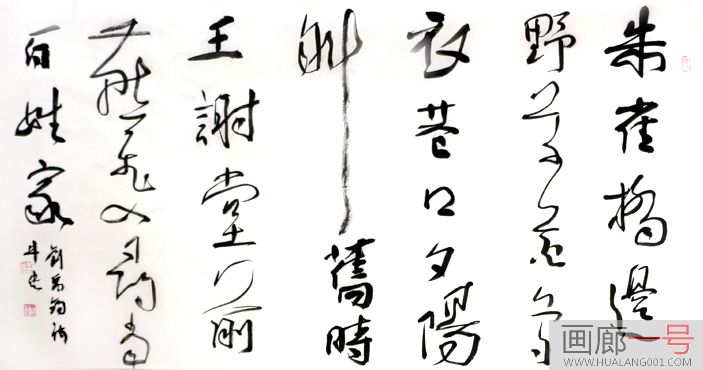 朱雀橋邊
野草花烏
衣巷口夕陽
斜舊時
王謝堂前
燕飛入尋常
百姓家
劉禹錫詩
画廊一号
WWW.HUALANG001.COM